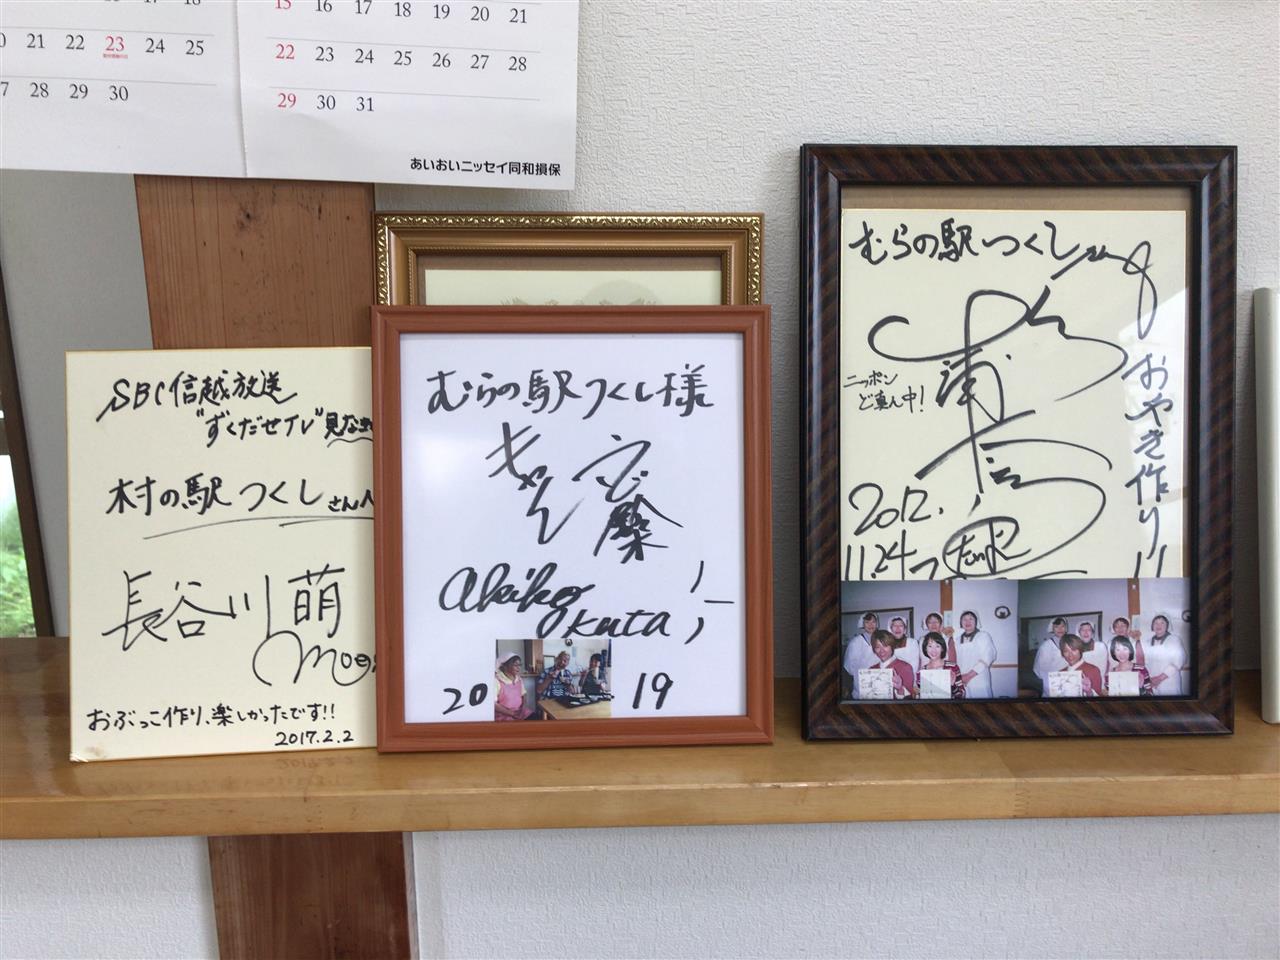 15 16 17 18 19 20 21
20 21 22 23 24 25
22 23 24 25 26 27 28
27 28 29 30
29 30 31
あいおいニッセイ同和損保
SBC信越放送
"ずくだせテレビ"見な
村の駅つくしさんへ
長谷川萌
おぶっこ作り、楽しかったです!!
2017.2.2
むらの駅つくし様
Akiko
Okuta
2019
むらの駅つくし
ニッポン
ど真ん中!
おやき作り
2012.
11.24